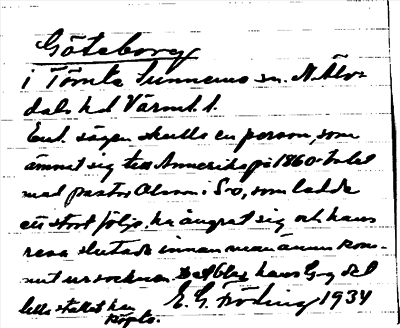 Göteborg
i Tömta Sunnemo sn. N. Älv-
dals hd Värml. l.
Enl. sägen skulle en person, som
ämnat sig till Amerika på 1860-talet
med pastor Olson i S-o, som ledde
ett stort följe, ha ångrat sig och hans
resa slutade innan man ännu kom-
mit ur socknen. Det blev hans G-g det
lilla stället han
köpte.
E. G. Fröding 1934